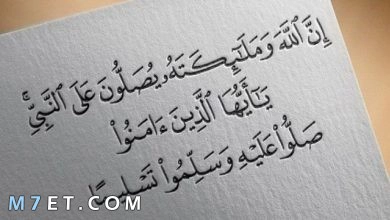 إِنَّ ٱللَّهَ وَمَلَـٰٓئِكَتَهُۥ يُصَلُّونَ عَلَى ٱلنَّبِىِّۚ
يَـٰٓأَيُّهَا ٱلَّذِينَ ءَامَنُوا۟
صَلُّوا۟ عَلَيْهِ وَسَلِّمُوا۟ تَسْلِيمًا
M7ET.COM